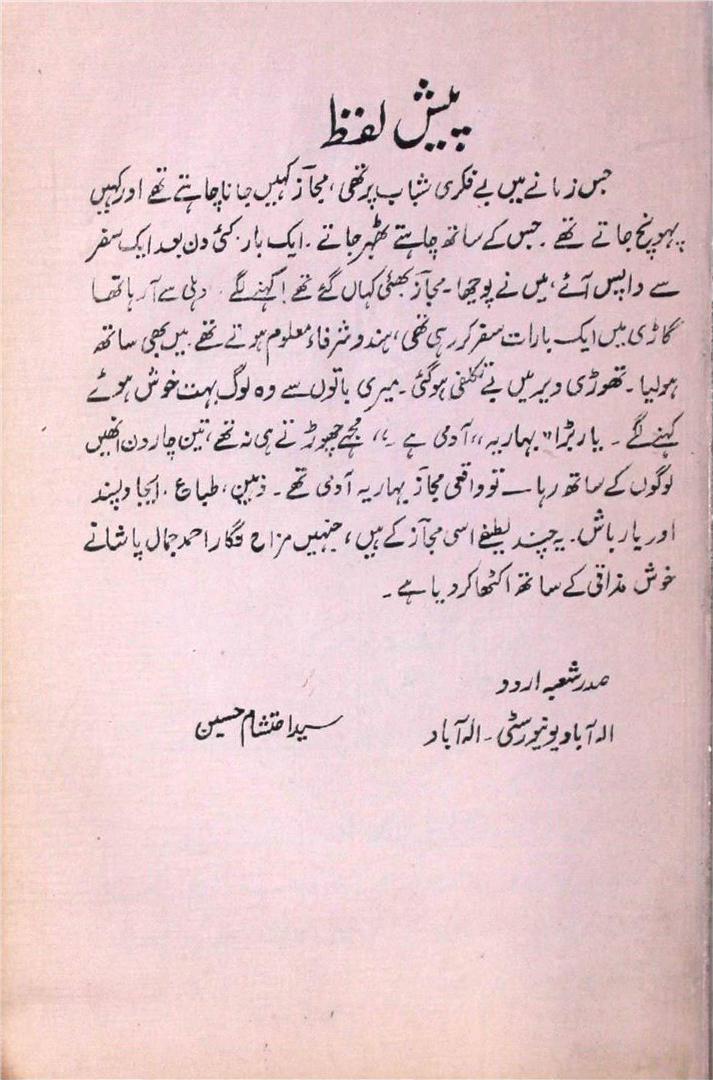 پیش لفظ
جس زمانے میں بے فکری شباب پر تھی، مجازؔ کہیں جانا چاہتے تھے اور کہیں
پہونچ جاتے تھے۔ جس کے ساتھ چاہتے ٹھہر جاتے۔ ایک بار کئی دن بعد ایک سفر
سے واپس آئے، میں نے پوچھا۔ مجازؔ بھئی کہاں گئے تھے! کہنے لگے۔ دہلی سے آ رہا تھا
گاڑی میں ایک بارات سفر کر رہی تھی، ہندو شرفاء معلوم ہوتے تھے میں بھی ساتھ
ہولیا۔ تھوڑی دیر میں بے تکلفی ہوگئی۔ میری باتوں سے وہ لوگ بہت خوش ہوئے
کہنے لگے۔ یار بڑا "بہاریہ،، آدمی ہے۔،، مجھے چھوڑتے ہی نہ تھے، تین چار دن انھیں
لوگوں کے ساتھ رہا — تو واقعی مجازؔ بہاریہ آدمی تھے۔ ذہین، طباع، ایجاد پسند
اور یار باش۔ یہ چند لطیفے اسی مجازؔ کے ہیں، جنہیں مزاح نگار احمد جمال پاشا نے
خوش مذاقی کے ساتھ اکٹھا کر دیا ہے۔
صدر شعبہ اردو
الہ آباد یونیورسٹی۔ الہ آباد
سید احتشام حسین